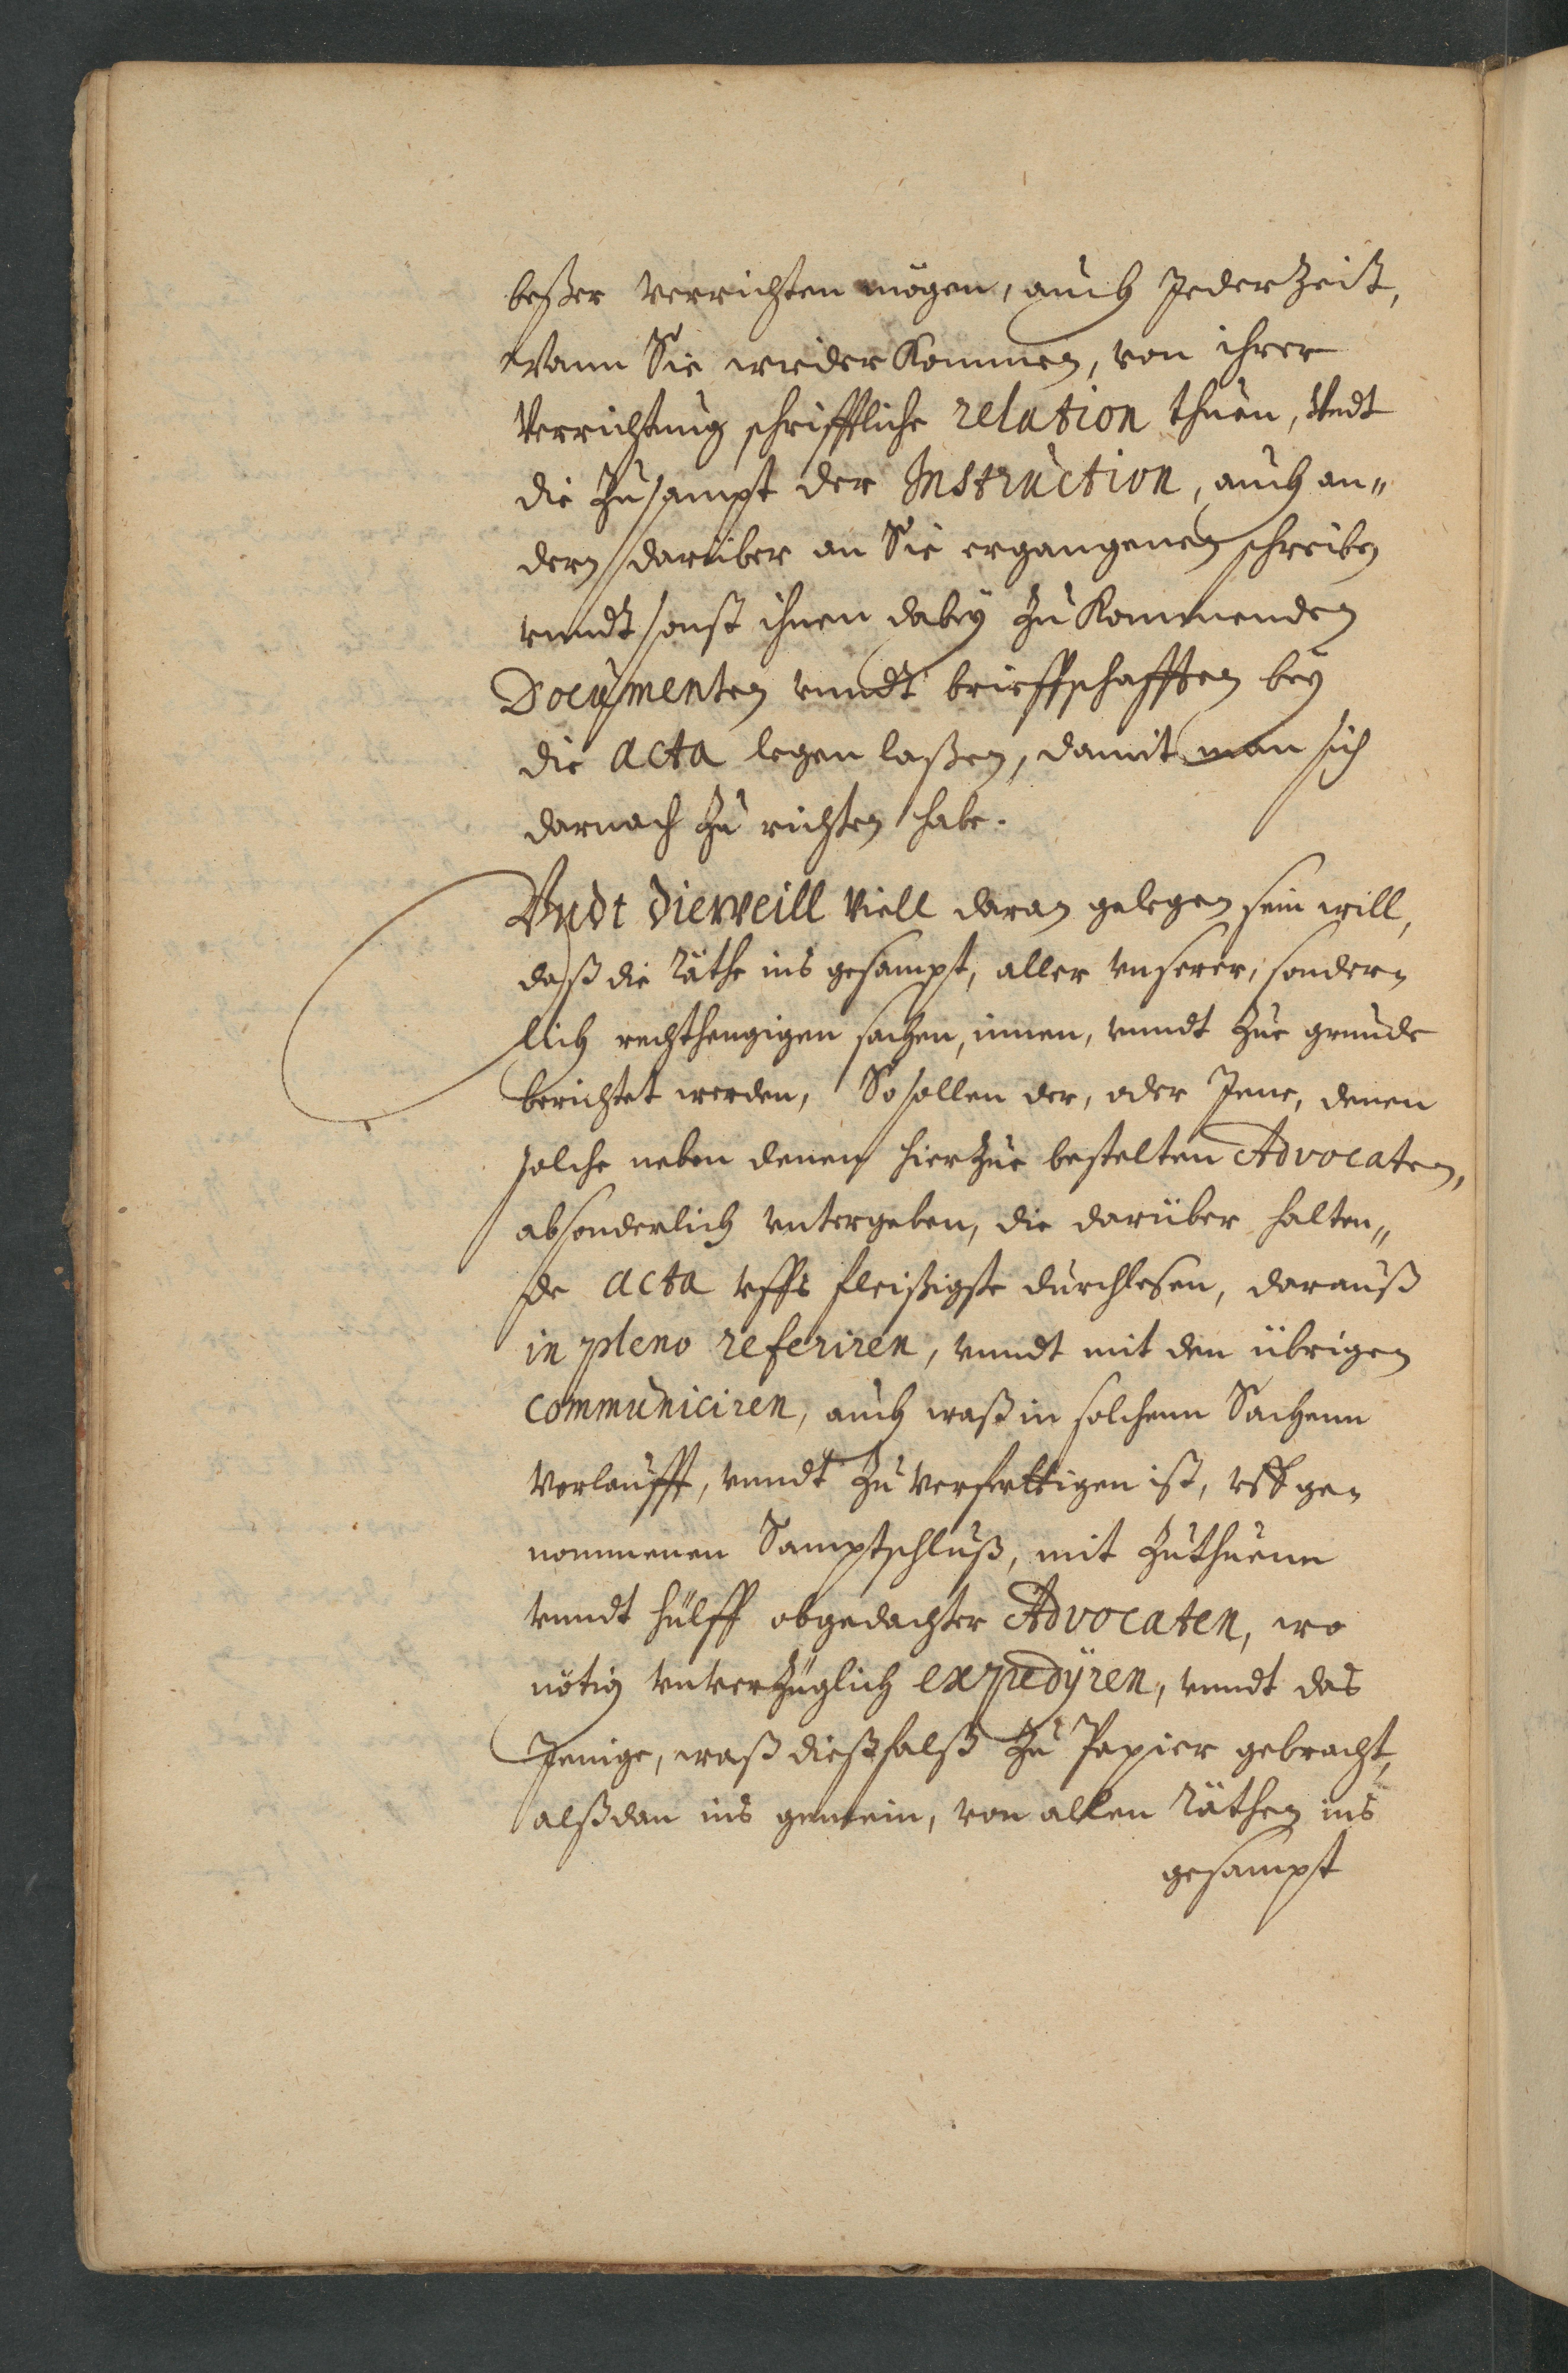 beßer verrichten mögen, auch Jederzeit,
Wann Sie wieder Kommen, von ihrer
Verrichtung schrifftliche relation thuen, Vndt
die Zusampt der Instruction, auch an„
dern darüber an Sie ergangenen schreiben
vnndt sonst ihnen dabey Zu Kommenden
Documenten vnndt brieffschafften bey
die acta legen laßen, damit man sich
darnach Zu richten habe.
Vndt dieweill Viell daran gelegen sein will,
daß die Räthe ins gesampt, aller vnserer, sonder„
lich rechthengigen sachen, innen, vnndt Zue grunde
berichtet werden, So sollen der, oder Jene, denen
solche neben denen hierZue bestelten Advocaten,
absonderlich vntergeben, die darüber halten„
de acta vffs fleißigste durchlesen, darauß
in pleno referiren, vnndt mit den übrigen
communiciren, auch waß in solchenn Sachenn
Vorlaufft, vnndt Zu Verferttigen ist, vff ge„
nommenen Samptschluß, mit Zuthuenn
vnndt hülff obgedachter Advocaten, wo
nötig vnverZüglich expedÿren, vnndt das
Jenige, waß dießfalß Zu Papier gebracht,
alßdan ins gemein, von allen Räthen ins
gesampt